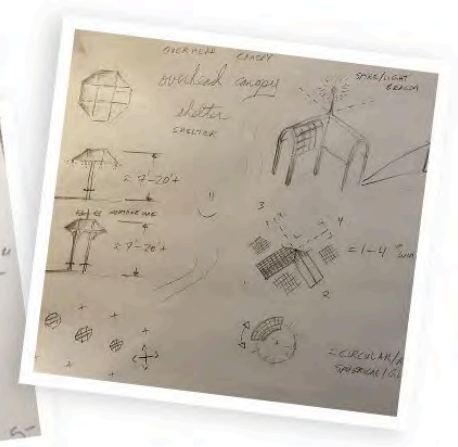 OVERHEAD CANOPY
overhead canopy
shelter
SHELTER
SPIKE/LIGHT
BEACON
≈ 7'-20'+
≈ 7'-20'+
3
4
1
2
= 1-4
= CIRCULAR/
SPHERICAL/